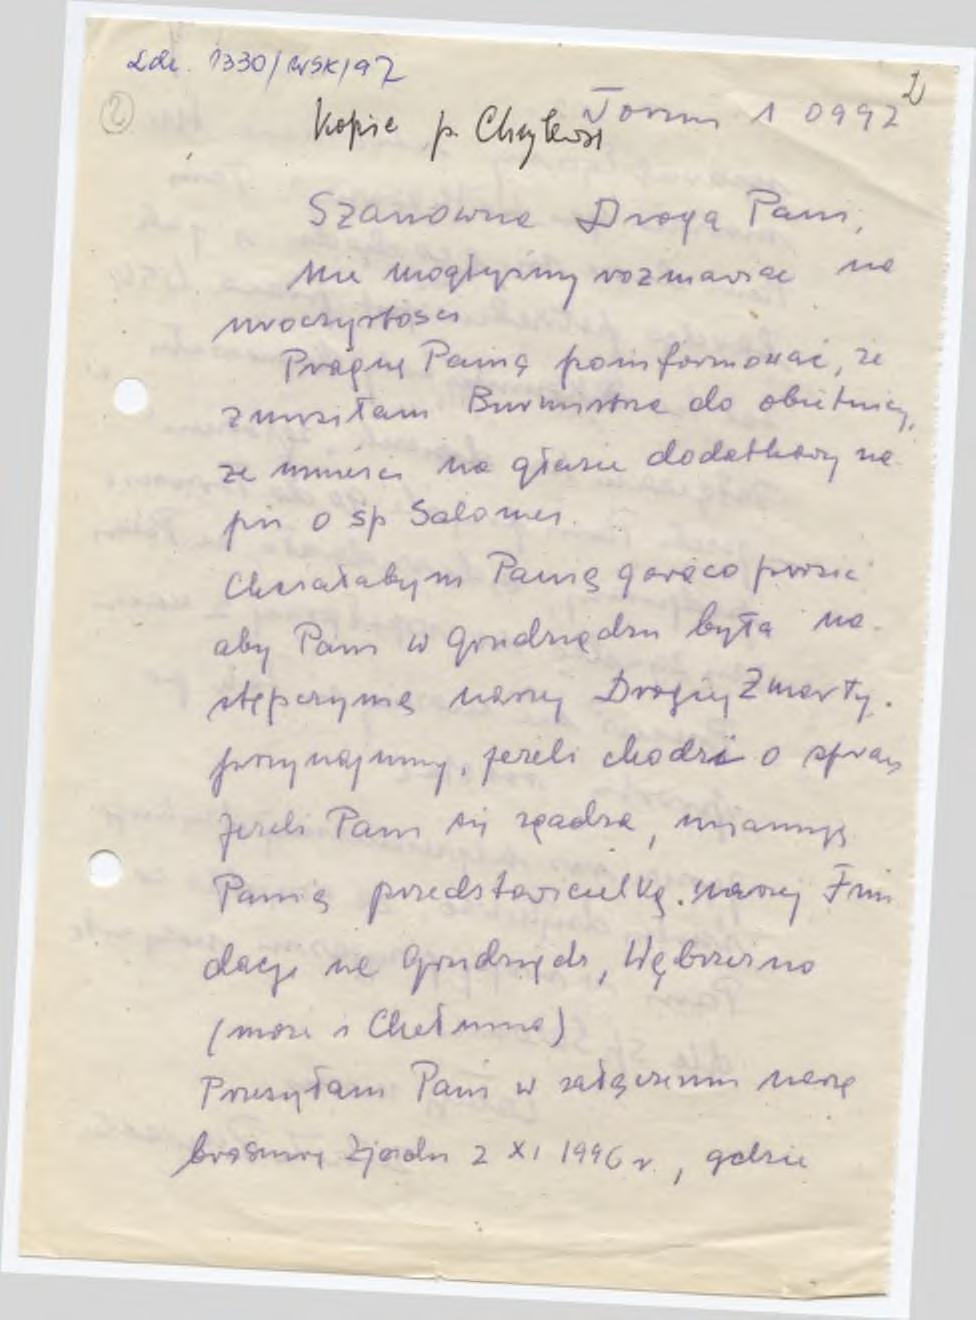 Ldz. 1330/WSK/97
2
(2)
Toruń 1 0997
Kopie p.
Szanowna Droga Pani,
Nie mogłyśmy rozmawiac na
uroczystosci
Pragnę Panią poinformować, że
zmusiłam Burmistrza do obietnicy,
ze umiesci na głazie dodatkowy na-
pis o sp Salomei.
Chciałabym Panią gorąco prosić
aby Pani w Grudziądzu była na-
stępczynią naszej Drogiej Zmarłej.
przynajmniej, jeżeli chodzi o sprawy
Jezeli Pani się zgadza,
Panią przedstawicielką naszej Fun
dacji na Grudziądz, Wąbrzezno
(może i Chełmno)
Przesyłam Pani w załączeniu naszą
broszurę Zjazdu 2 XI 1996 r., gdzie